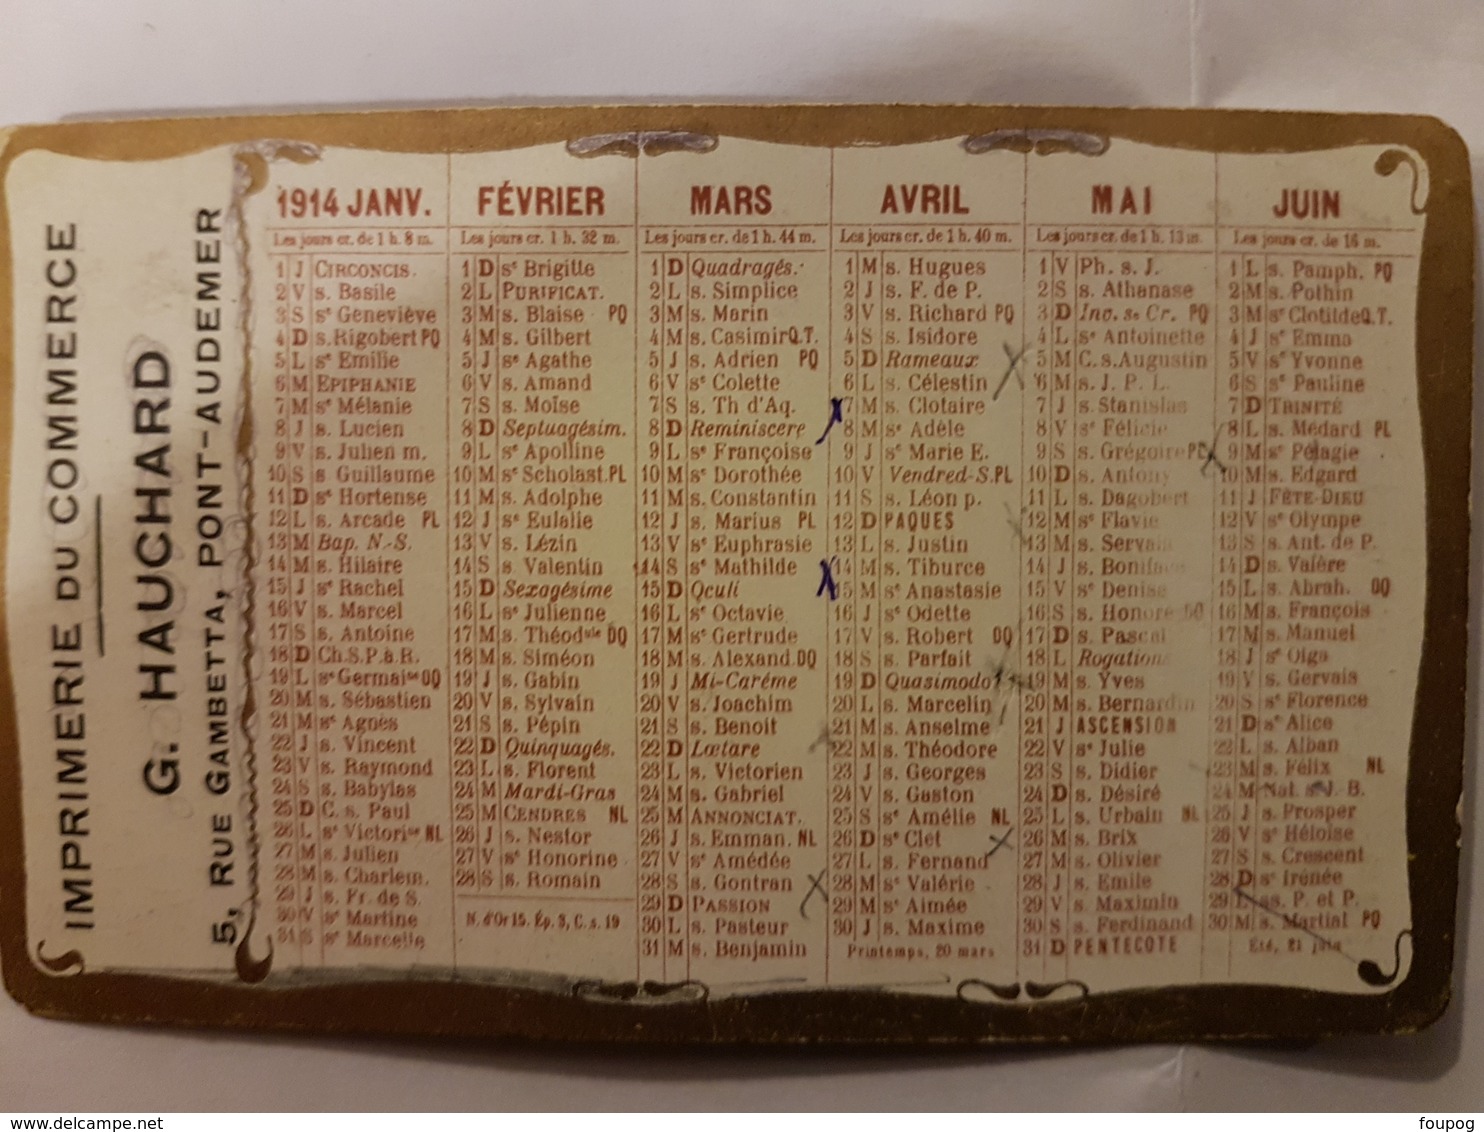 IMPRIMERIE DU COMMERCE
G. HAUCHARD
5, RUE GAMBETTA, PONT-AUDEMER
1914 JANV.
Les jours cr. de 1 h. 8 m.
1 J CIRCONCIS.
2 V s. Basile
3 S se Geneviève
4 D s. Rigobert PQ
5 L se Emilie
6 M EPIPHANIE
7 M se Mélanie
8 J s. Lucien
9 V s. Julien m.
10 S s. Guillaume
11 D se Hortense
12 L s. Arcade PL
13 M Bap. N.-S.
14 M s. Hilaire
15 J se Rachel
16 V s. Marcel
17 S s. Antoine
18 D Ch.S.P.à.R.
19 L se Germaine DQ
20 M s. Sébastien
21 M se Agnès
22 J s. Vincent
23 V s. Raymond
24 S s. Babylas
25 D C. s. Paul
26 L se Victorine NL
27 M s. Julien
28 M s. Charlem.
29 J s. Fr. de S.
30 V se Martine
31 S se Marcelle
FÉVRIER
Les jours cr. 1 h. 32 m.
1 D se Brigitte
2 L PURIFICAT.
3 M s. Blaise PQ
4 M s. Gilbert
5 J se Agathe
6 V s. Amand
7 S s. Moïse
8 D Septuagésim.
9 L se Apolline
10 M se Scholast. PL
11 M s. Adolphe
12 J se Eulalie
13 V s. Lézin
14 S s. Valentin
15 D Sexagésime
16 L se Julienne
17 M s. Théodule DQ
18 M s. Siméon
19 J s. Gabin
20 V s. Sylvain
21 S s. Pépin
22 D Quinquagés.
23 L s. Florent
24 M Mardi-Gras
25 M CENDRES NL
26 J s. Nestor
27 V se Honorine
28 S s. Romain
N. d'Or 15. Ép. 3, C. s. 19
MARS
Les jours cr. de 1 h. 44 m.
1 D Quadragés.
2 L s. Simplice
3 M s. Marin
4 M s. Casimir Q.T.
5 J s. Adrien PQ
6 V se Colette
7 S s. Th d'Aq.
8 D Reminiscere
9 L se Françoise
10 M se Dorothée
11 M s. Constantin
12 J s. Marius PL
13 V se Euphrasie
14 S se Mathilde
15 D Oculi
16 L se Octavie
17 M se Gertrude
18 M s. Alexand. DQ
19 J Mi-Carême
20 V s. Joachim
21 S s. Benoit
22 D Lœtare
23 L s. Victorien
24 M s. Gabriel
25 M ANNONCIAT.
26 J s. Emman. NL
27 V se Amédée
28 S s. Gontran
29 D PASSION
30 L s. Pasteur
31 M s. Benjamin
AVRIL
Les jours cr. de 1 h. 40 m.
1 M s. Hugues
2 J s. F. de P.
3 V s. Richard PQ
4 S s. Isidore
5 D Rameaux
6 L s. Célestin
7 M s. Clotaire
8 M se Adèle
9 J se Marie E.
10 V Vendred-S. PL
11 S s. Léon p.
12 D PAQUES
13 L s. Justin
14 M s. Tiburce
15 M se Anastasie
16 J se Odette
17 V s. Robert DQ
18 S s. Parfait
19 D Quasimodo
20 L s. Marcelin
21 M s. Anselme
22 M s. Théodore
23 J s. Georges
24 V s. Gaston
25 S se Amélie NL
26 D se Clet
27 L s. Fernand
28 M se Valérie
29 M se Aimée
30 J s. Maxime
Printemps, 20 mars
MAI
Les jours cr. de 1 h. 13 m.
1 V Ph. s. J.
2 S s. Athanase
3 D Inv. se Cr. PQ
4 L se Antoinette
5 M C. s. Augustin
6 M s. J. P. L.
7 J s. Stanislas
8 V se Félicie
9 S s. Grégoire PL
10 D s. Antony
11 L s. Dagobert
12 M se Flavie
13 M s. Servais
14 J s. Boniface
15 V se Denise
16 S s. Honoré DQ
17 D s. Pascal
18 L Rogations
19 M s. Yves
20 M s. Bernardin
21 J ASCENSION
22 V se Julie
23 S s. Didier
24 D s. Désiré
25 L s. Urbain NL
26 M s. Brix
27 M s. Olivier
28 J s. Emile
29 V s. Maximin
30 S s. Ferdinand
31 D PENTECOTE
JUIN
Les jours cr. de 16 m.
1 L s. Pamph. PQ
2 M s. Pothin
3 M se Clotilde Q.T.
4 J se Emma
5 V se Yvonne
6 S se Pauline
7 D TRINITÉ
8 L s. Médard PL
9 M se Pélagie
10 M s. Edgard
11 J FÊTE-DIEU
12 V se Olympe
13 S s. Ant. de P.
14 D s. Valère
15 L s. Abrah. DQ
16 M s. François
17 M s. Manuel
18 J se Olga
19 V s. Gervais
20 S se Florence
21 D se Alice
22 L s. Alban
23 M s. Félix NL
24 M Nat. s. J. B.
25 J s. Prosper
26 V se Héloise
27 S s. Crescent
28 D se Irénée
29 L ss. P. et P.
30 M s. Martial PQ
Été, 21 juin
www.delcampe.net
foupog